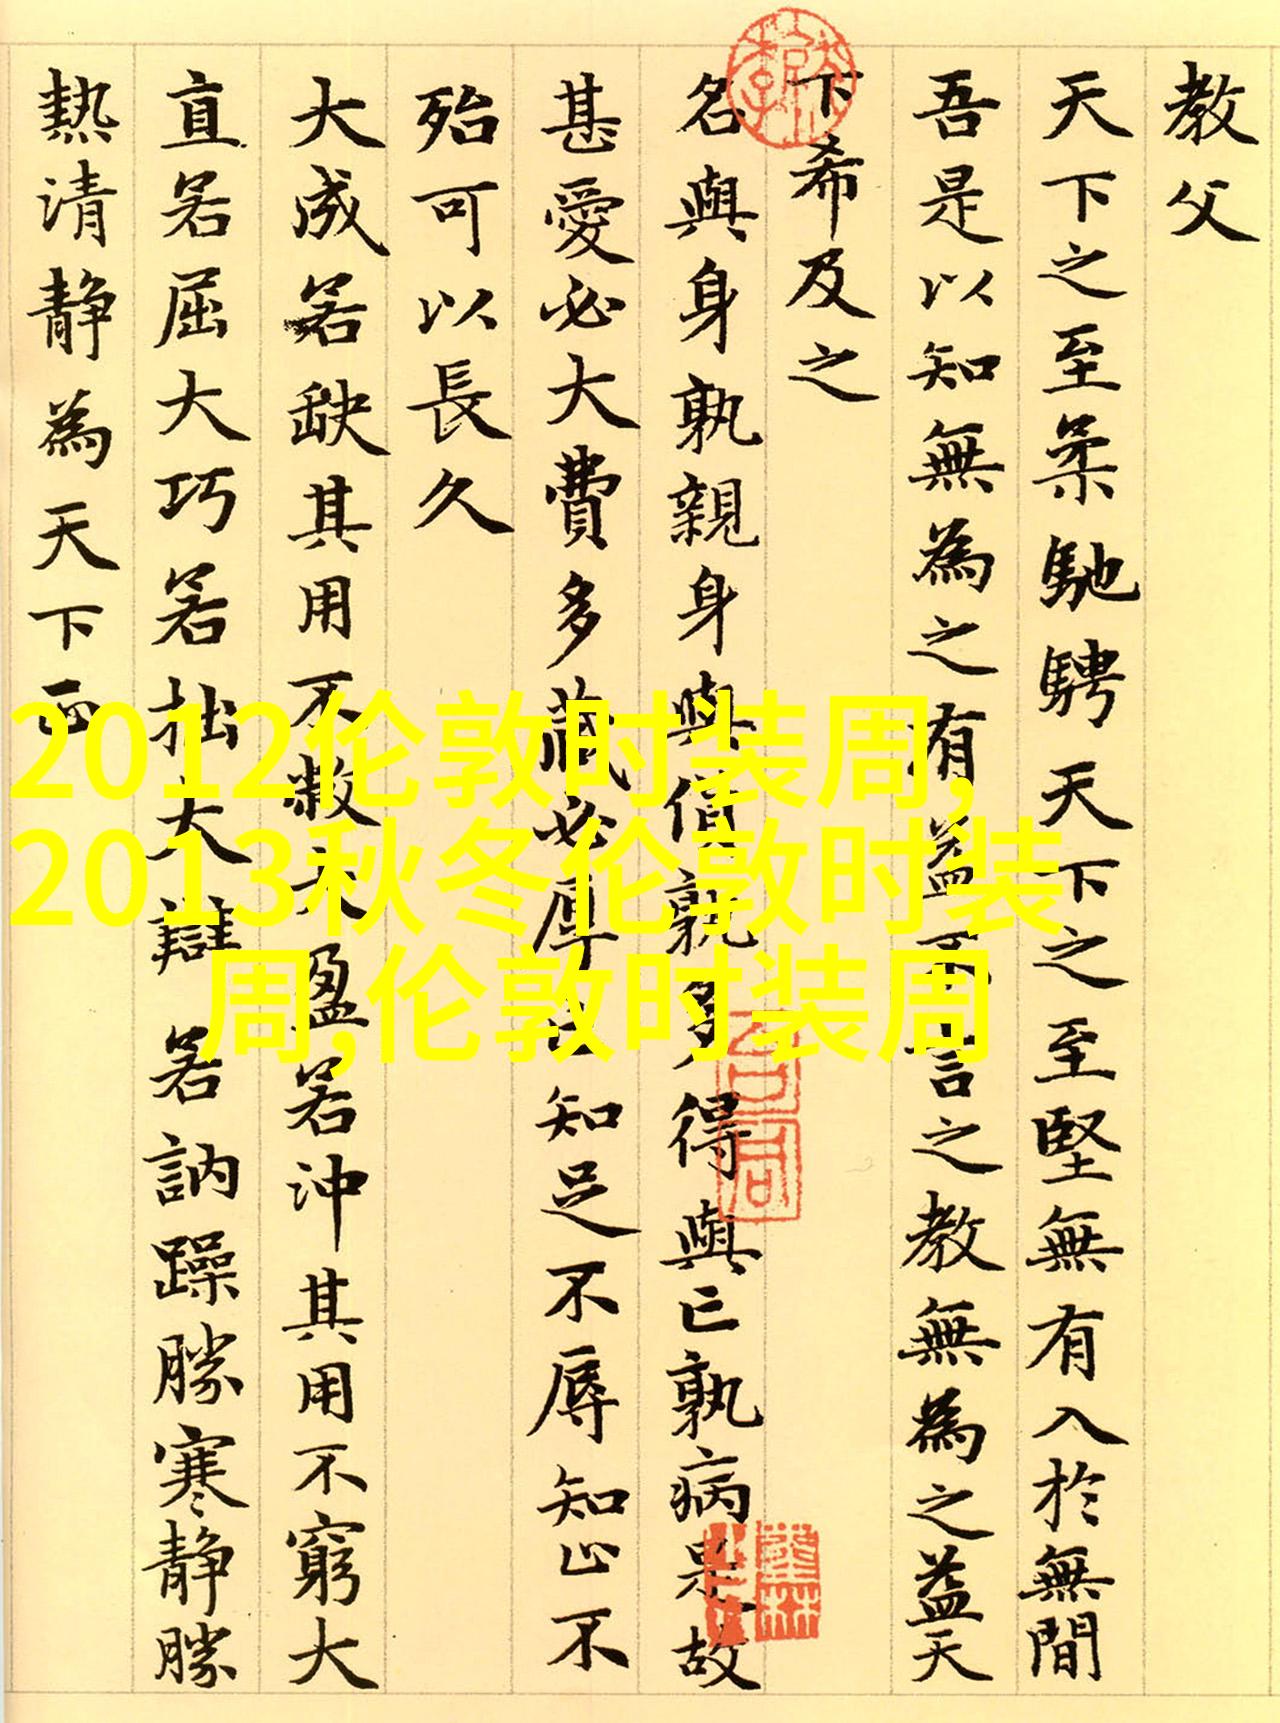 教父
天下之至柔馳騁天下之至堅無有入於無間
吾是以知無為之有益不言之教無為之益天
下希及之
名與身孰親身與貨孰多得與亡孰病是故
甚愛必大費多藏必厚亡知足不辱知止不
殆可以長久
大成若缺其用不敝大盈若沖其用不窮大
直若屈大巧若拙大辯若訥躁勝寒静勝
熱清静為天下正
2012伦敦时装周,
2013秋冬伦敦时装
周,伦敦时装周